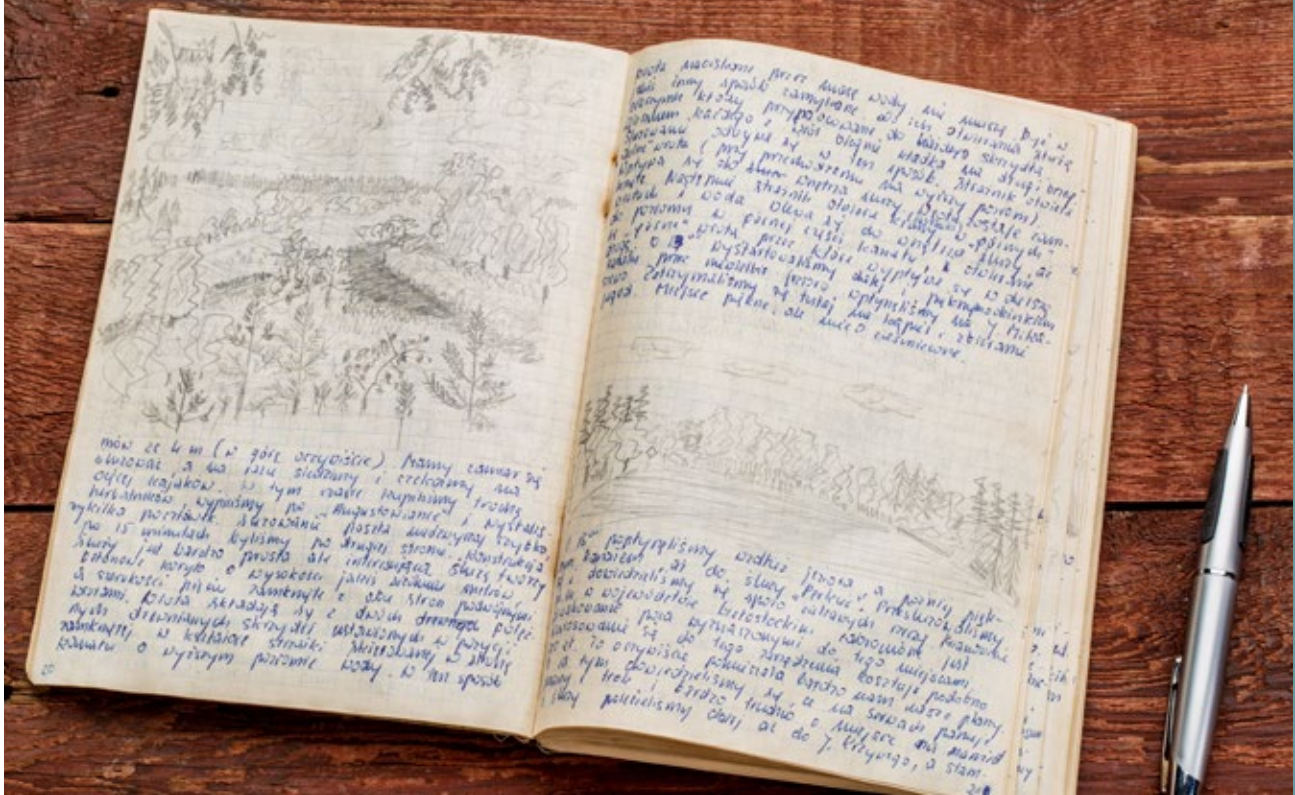 mów ze 4 m (w górę oczywiście). Mamy zamiar się
śluzować, a na razie siedzimy i czekamy na
więcej kajaków. W tym czasie kupiliśmy trochę
herbatników wypiliśmy po "Augustowiance" i wysłaliś-
my kilka pocztówek. Śluzowanie poszło nadzwyczaj szybko
po 15 minutach byliśmy po drugiej stronie. Konstrukcja
śluzy jest bardzo prosta ale interesująca. Śluzę tworzy
betonowe koryto o wysokości jakiś metrów
a szerokości pięciu zamknięte z obu stron podwójnymi
wrotami. Wrota składają się z dwóch połę-
nych drewnianych skrzydeł ustawionych w pozycji
zamkniętej w kształcie strzałki skierowanej w stronę
kanału o wyższym poziomie wody. W ten sposób
20
wrota naciskane przez masę wody nie muszą być w
jakiś inny sposób zamykane. Do ich otwierania służą
przypasowane do każdego skrzydła.
każdego z wrót biegnie kładka na drugi brzeg.
Śluzowanie odbywa się w ten sposób. Strażnik otwiera
wrota (przy przechodzeniu na wyższy poziom)
wpływa się do wnętrza śluzy, wrota zostają zam-
knięte. Następnie strażnik otwiera w górnych
wrotach i woda wlewa się do wnętrza śluzy, aż
do poziomu w górnej części kanału, i otwierane
są "górne" wrota przez które wypływa się w dalszą
drogę. O 13 wystartowaliśmy dalej i pięknym odcinkiem
kanału przez niewielkie jezioro wpłynęliśmy na j. Mikoł-
. Zatrzymaliśmy się tutaj na kąpiel i zbieranie
jagód. Miejsce piękne, ale nieco zaśmiecone.
popłynęliśmy wzdłuż jeziora a później pięk-
nym kanałem aż do śluzy "Perkuć". Prześluzowaliśmy
się i dowiedzieliśmy się sporo ciekawych rzeczy. Mianowicie
w województwie białostockim zabronione jest
biwakowanie poza wyznaczonymi do tego miejscami.
się do tego zarządzenia kosztuje podobno
zł. To oczywiście pomieszało bardzo nasze plany.
tym dowiedzieliśmy się, że na Serwach panuje
tłok i bardzo trudno o miejsce na namiot
śluzy puściliśmy dalej aż do j. Krzywego, a stam-